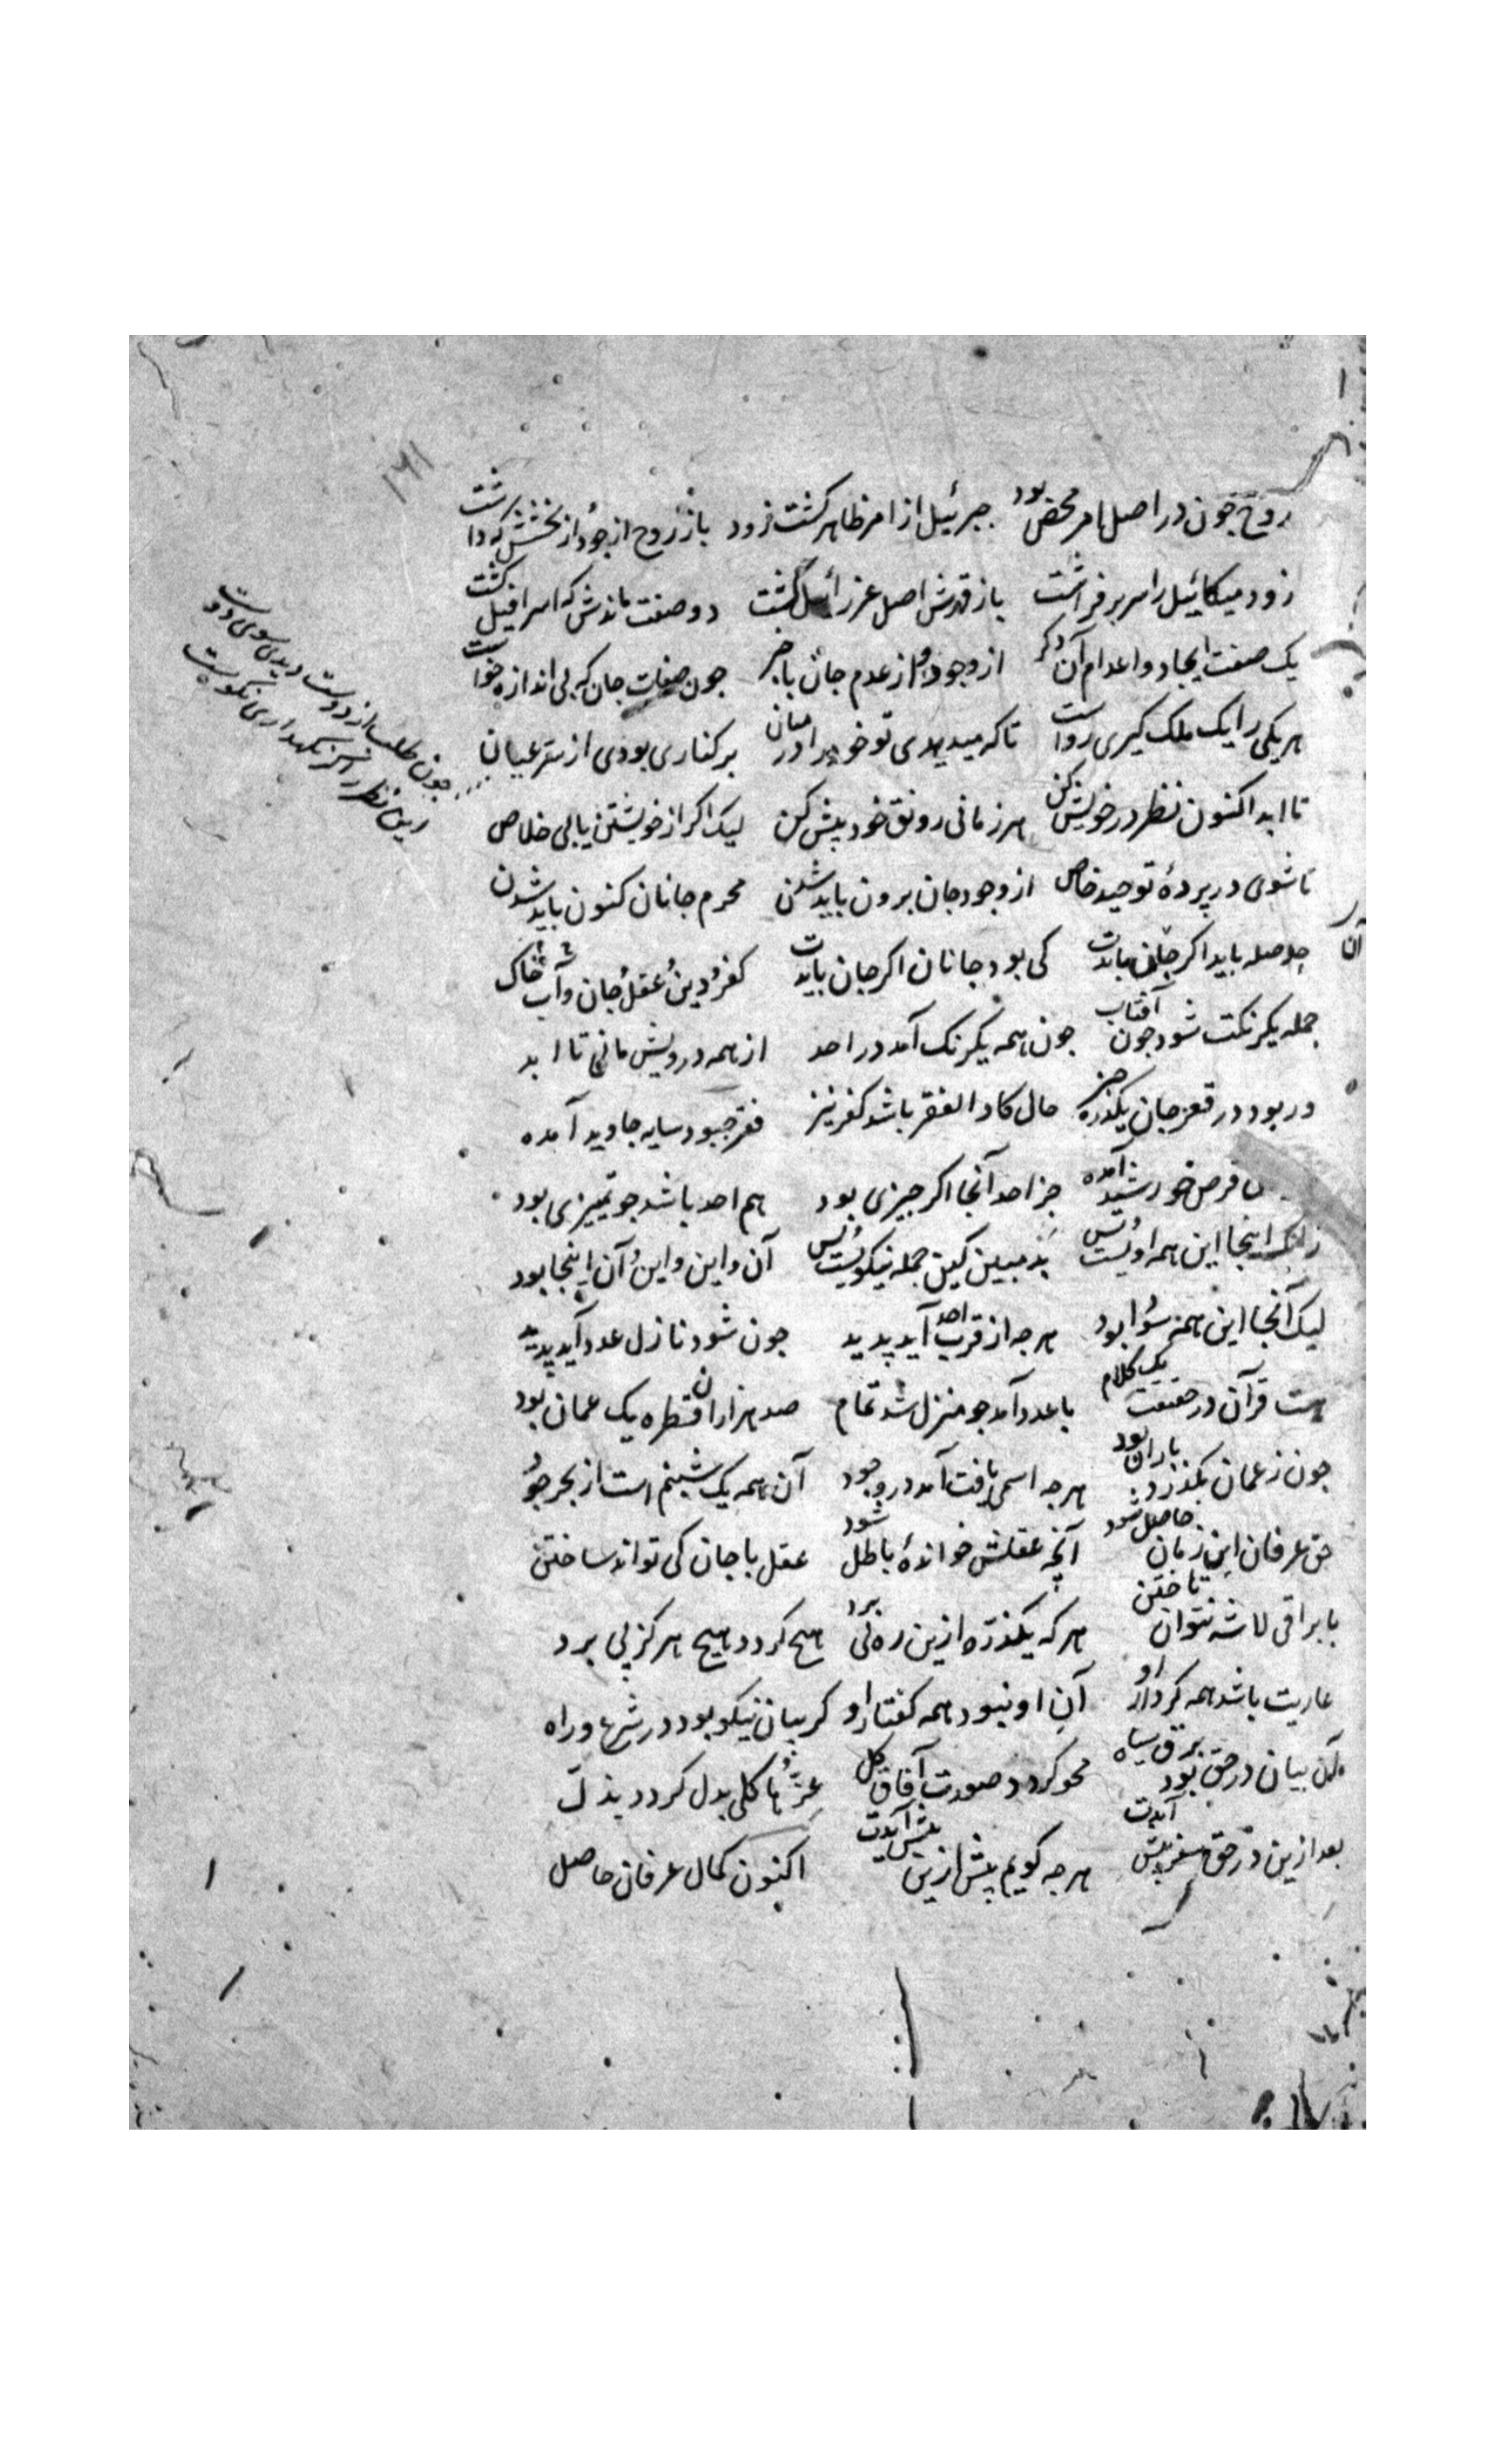 ۱۲۱
روح چون در اصل امر محض بود جبرئیل از امر ظاهر کشت زود باز روح از جود از بخشش که داشت
زود میکائیل را سر بر فراشت باز قهرش اصل عزرائیل کشت دو صفت ماندش که اسرافیل کشت
یک صفت ایجاد و اعدام آن دکر از وجود و از عدم جان با خبر چون صفات جان که بی اندازه خواست
هر یکی را یک ملک کیری رواست تا که میدیدی تو خود را در میان بر کناری بودی از سر عیان
تا ابد اکنون نظر در خویش کن هر زمانی رونق خود بیش کن لیک اکر از خویشتن یابی خلاص
تا شوی در پردهٔ توحید خاص از وجود جان برون باید شدن محرم جانان کنون باید شدن
حوصله باید اکر جانی بایدت کی بود جانان اکر جان بایدت کفر و دین و عقل و جان و آب و خاک
جمله یکرنکت شود چون آفتاب چون همه یکرنک آمد در احد از همه درویش مانی تا ابد
ور بود در قعر جان یکذره چیز حال کاد الفقر باشد کفر نیز فقر چبود سایه جاوید آمده
قرص خورشید آمده جز احد آنجا اکر چیزی بود هم احد باشد چو تمییزی بود
زانک اینجا این همه اوئست بس بد مبین کین جمله نیکوئست بس آن و این و این و آن اینجا بود
لیک آنجا این همه سودا بود هر چه از قرب احد آید پدید چون شود نازل عدد آید پدید
هست قرآن در حقیقت یک کلام با عدد آمد چو منزل شد تمام صد هزاران قطره یک عمان بود
چون ز عمان بگذرد باران بود هر چه اسمی یافت آمد در وجود آن همه یک شبنم است از بحر جود
حق عرفان این زمان حاصل شود آنچه عقلش خواندهٔ باطل شود عقل با جان کی تواند ساختن
با براقی لاشه نتوان تاختن هر که یکذره ازین ره پی برد هیچ کردد هیچ هرکز پی برد
عاریت باشد همه کردار او آن او نبود همه کفتار او کر بیان نیکو بود در شرع و راه
آن بیان در حق بود برق سیاه محو کردد صورت آفاق کل عزها کلی بدل کردد بذل
بعد ازین در حق سفر پیش آیدت هر چه کویم بیش ازین پیش آیدت اکنون کمال عرفان حاصل
چون طلب از دوست دیدی سوی دوست
این نظر را کر نکهداری نکوست